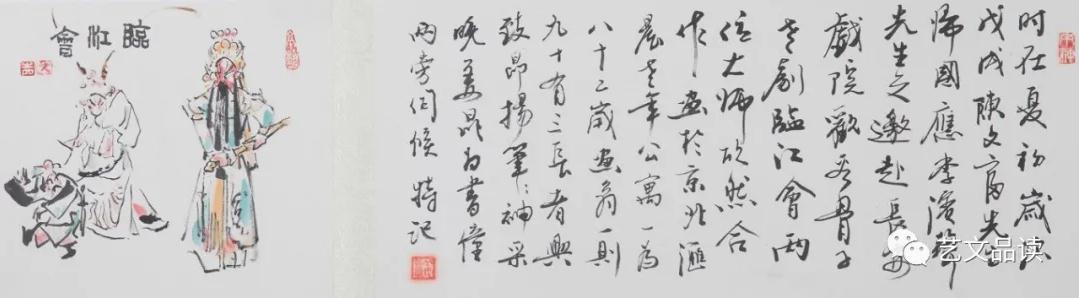 时在夏初歲次
戊戌陳文富先生
歸國應李濱聲
先生之邀赴長安
戲院觀看骨子
老劇臨江會兩
位大师欣然合
作畫於京北滙
晨老年公寓一為
八十二歲畫翁一則
九十有三長者興
致昂揚筆筆神采
晚姜昆为書僮
兩旁伺候 特記
臨江會
艺文品读